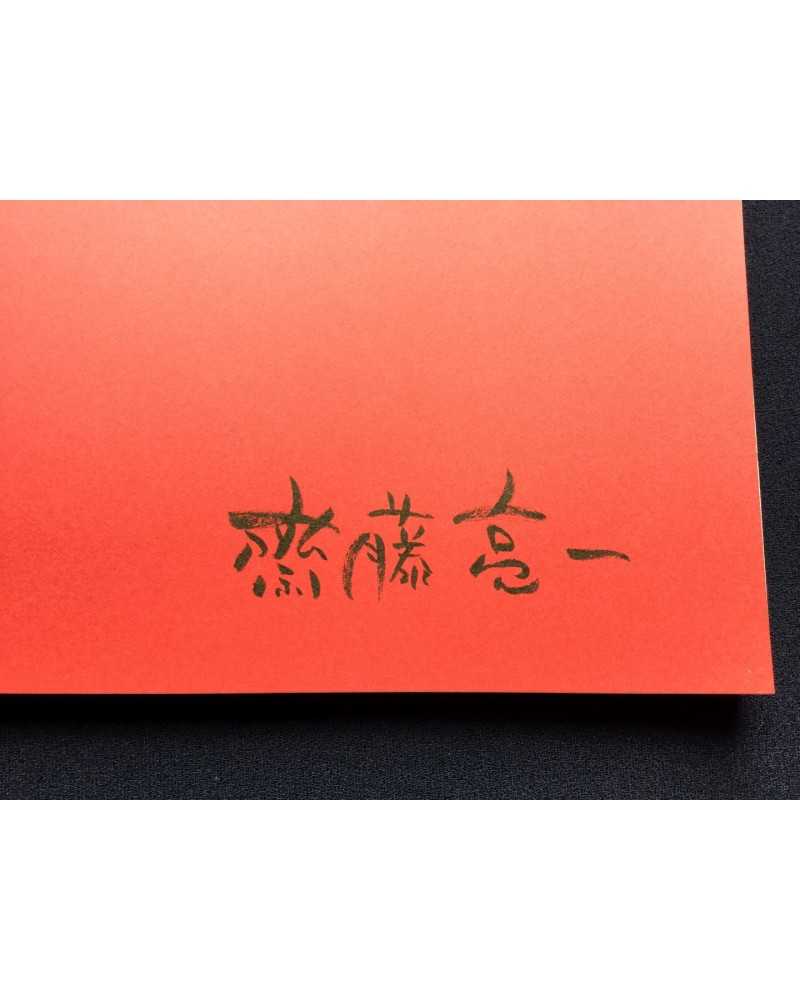 齋藤亮一